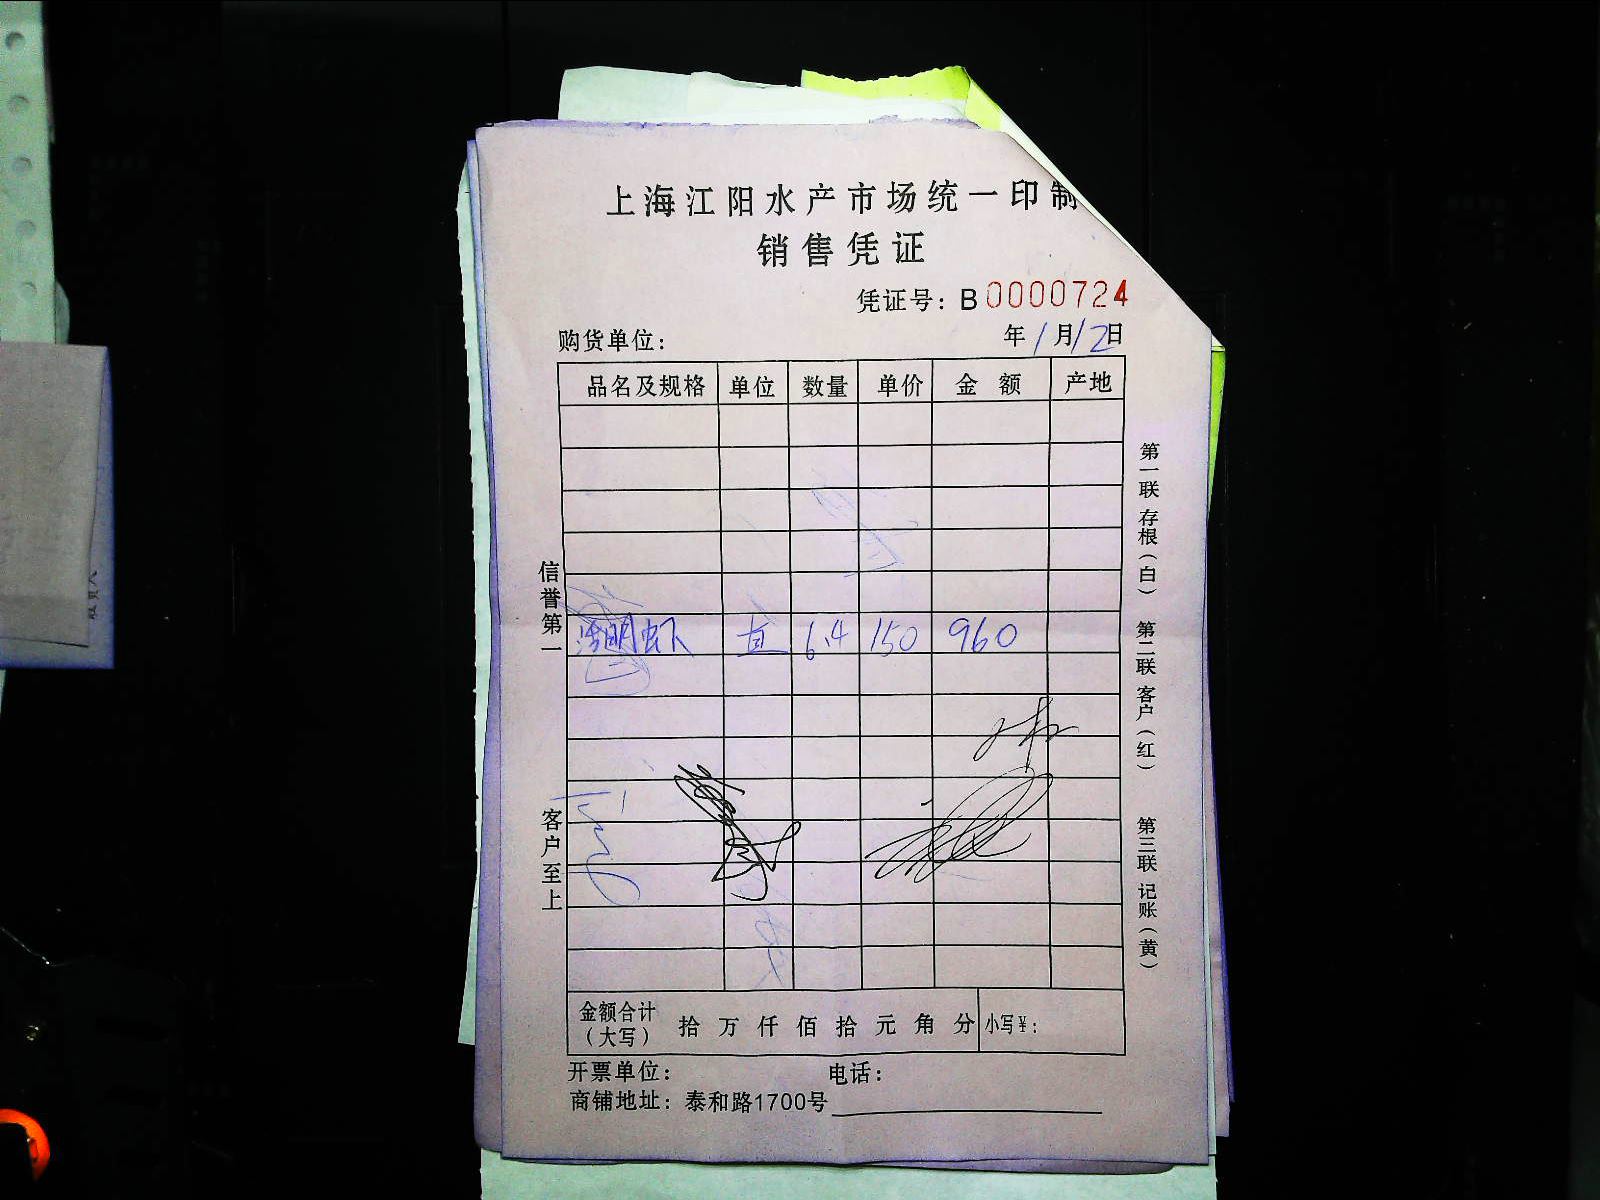 上海江阳水产市场统一印制
销售凭证
凭证号：B0000724
购货单位： 年1月12日
品名及规格 单位 数量 单价 金额 产地
明虾 6.4 150 960
信誉第一
客户至上
第一联 存根（白） 第二联 客户（红） 第三联 记账（黄）
金额合计（大写） 拾万仟佰拾元角分 小写¥：
开票单位： 电话：
商铺地址：泰和路1700号